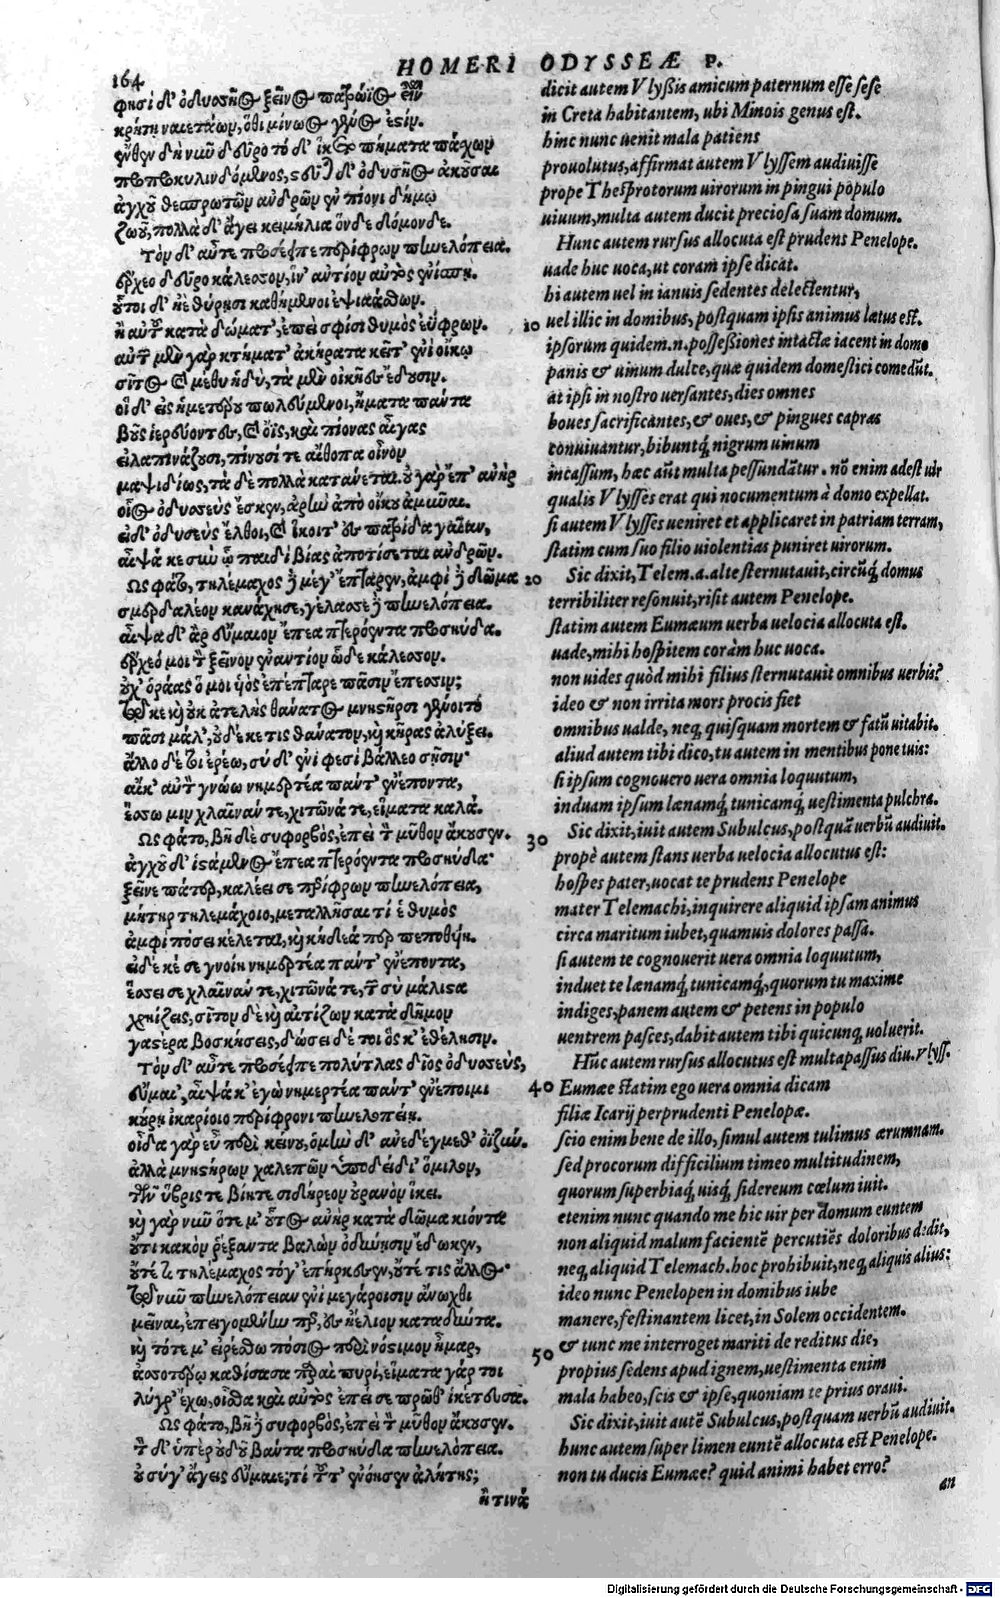 164
HOMERI ODYSSEÆ P.
φησὶ δ' ὀδυσσῆος ξεῖνος πατρώϊος εἶναι
κρήτῃ ναιετάων, ὅθι μίνωος γένος ἐστίν.
ἔνθεν δὴ νῦν δεῦρο τόδ' ἵκετο πήματα πάσχων
προπροκυλινδόμενος, στεῦται δ' ὀδυσῆος ἀκοῦσαι
ἀγχοῦ θεσπρωτῶν ἀνδρῶν ἐν πίονι δήμῳ
ζωοῦ, πολλὰ δ' ἄγει κειμήλια ὅνδε δόμονδε.
Τὸν δ' αὖτε προσέειπε περίφρων πηνελόπεια.
ἔρχεο δεῦρο κάλεσσον, ἵν' ἀντίον αὐτὸς ἐνίσπῃ.
οὗτοι δ' ἠὲ θύρῃσι καθήμενοι ἑψιαάσθων.
ἢ αὐτοῦ κατὰ δώματ', ἐπεὶ σφίσι θυμὸς εὔφρων.
αὐτῶν μὲν γὰρ κτήματ' ἀκήρατα κεῖτ' ἐνὶ οἴκῳ
σῖτος καὶ μέθυ ἡδὺ, τὰ μὲν οἰκῆες ἔδουσιν.
οἱ δ' εἰς ἡμετέρου πωλεύμενοι, ἤματα πάντα
βοῦς ἱερεύοντες, καὶ ὄϊς, καὶ πίονας αἶγας
εἰλαπινάζουσι, πίνουσί τε αἴθοπα οἶνον
μαψιδίως, τὰ δὲ πολλὰ κατάνεται. οὐ γὰρ ἔπ' ἀνὴρ
οἷος ὀδυσσεὺς ἔσκεν, ἀρὴν ἀπὸ οἴκου ἀμῦναι.
εἰ δ' ὀδυσεὺς ἔλθοι, καὶ ἵκοιτ' ἐς πατρίδα γαῖαν,
αἶψά κε σὺν ᾧ παιδὶ βίας ἀποτίσεται ἀνδρῶν.
Ως φάτο, τηλέμαχος δὲ μέγ' ἔπταρεν, ἀμφὶ δὲ δῶμα
σμερδαλέον κανάχησε, γέλασσε δὲ πηνελόπεια.
αἶψα δ' ἄρ εὔμαιον ἔπεα πτερόεντα προσηύδα.
ἔρχεό μοι τὸν ξεῖνον ἐναντίον ὧδε κάλεσσον.
οὐχ' ὁράας ὅ μοι υἱὸς ἐπέπταρε πᾶσιν ἔπεσσιν;
τῷ κε καὶ οὐκ ἀτελὴς θάνατος μνηστῆρσι γένοιτο
πᾶσι μάλ', οὐδέ κε τις θάνατον, καὶ κῆρας ἀλύξει.
ἄλλο δέ τοι ἐρέω, σὺ δ' ἐνὶ φρεσὶ βάλλεο σῇσιν·
αἴκ' αὐτὸν γνώω νημερτέα πάντ' ἐνέποντα,
ἕσσω μιν χλαῖνάν τε, χιτῶνά τε, εἵματα καλά.
Ως φάτο, βῆ δὲ συφορβὸς, ἐπεὶ τὸν μῦθον ἄκουσεν.
ἀγχοῦ δ' ἱστάμενος ἔπεα πτερόεντα προσηύδα·
ξεῖνε πάτερ, καλέει σε περίφρων πηνελόπεια,
μήτηρ τηλεμάχοιο, μεταλλῆσαί τί ἑ θυμὸς
ἀμφὶ πόσει κέλεται, καὶ κήδεά περ πεπαθυίῃ.
εἰ δέ κέ σε γνοίη νημερτέα πάντ' ἐνέποντα,
ἕσσει σε χλαῖνάν τε, χιτῶνά τε, τῶν σὺ μάλιστα
χρηίζεις, σῖτον δὲ καὶ αἰτίζων κατὰ δῆμον
γαστέρα βοσκήσεις, δώσει δέ τοι ὅς κ' ἐθέλῃσιν.
Τὸν δ' αὖτε προσέειπε πολύτλας δῖος ὀδυσσεὺς,
εὔμαι', αἶψά κ' ἐγὼ νημερτέα πάντ' ἐνέποιμι
κούρῃ ἰκαρίοιο περίφρονι πηνελοπείῃ.
οἶδα γὰρ εὖ περὶ κείνου, ὁμὴν δ' ἀνεδέγμεθ' ὀϊζύν.
ἀλλὰ μνηστήρων χαλεπῶν ὑποδείδι' ὅμιλον,
τῶν ὕβρις τε βίη τε σιδήρεον οὐρανὸν ἵκει.
καὶ γὰρ νῦν ὅτε μ' οὗτος ἀνὴρ κατὰ δῶμα κιόντα
οὔτι κακὸν ῥέξαντα βαλὼν ὀδύνῃσιν ἔδωκεν,
οὔτέ τι τηλέμαχος τόγ' ἐπήρκεσεν, οὔτέ τις ἄλλος·
τῷ νῦν πηνελόπειαν ἐνὶ μεγάροισιν ἄνωχθι
μεῖναι, ἐπειγομένην περ, ἐς ἠέλιον καταδύντα.
καὶ τότε μ' εἰρέσθω πόσιος περὶ νόστιμον ἦμαρ,
ἀσσοτέρω καθίσασα παραὶ πυρί, εἵματα γάρ τοι
λύγρ' ἔχω, οἶσθα καὶ αὐτὸς ἐπεί σε πρῶθ' ἱκέτευσα.
Ως φάτο, βῆ δὲ συφορβὸς, ἐπεὶ τὸν μῦθον ἄκουσεν.
τὸν δ' ὑπὲρ οὐδοῦ βάντα προσηύδα πηνελόπεια.
οὐ σύγ' ἄγεις εὔμαιε; τί τοῦτ' ἐνόησεν ἀλήτης;
ἤ τινά
dicit autem Vlyßis amicum paternum esse sese
in Creta habitantem, ubi Minois genus est.
hinc nunc uenit mala patiens
prouolutus, affirmat autem Vlyssem audiuisse
prope Thesprotorum uirorum in pingui populo
uiuum, multa autem ducit preciosa suam domum.
Hunc autem rursus allocuta est prudens Penelope.
uade huc uoca, ut coram ipse dicat.
hi autem uel in ianuis sedentes delectentur,
10 uel illic in domibus, postquam ipsis animus lætus est.
ipsorum quidem.n. possessiones intactæ iacent in domo
panis & uinum dulce, quæ quidem domestici comedũt.
at ipsi in nostro uersantes, dies omnes
boues sacrificantes, & oues, & pingues capras
conuiuantur, bibuntq́; nigrum uinum
incassum, hæc aũt multa pessundãtur. nõ enim adest uir
qualis Vlysses erat qui nocumentum à domo expellat.
si autem Vlysses ueniret et applicaret in patriam terram,
statim cum suo filio uiolentias puniret uirorum.
20 Sic dixit, Telem.a. alte sternutauit, circũq́; domus
terribiliter resonuit, risit autem Penelope.
statim autem Eumæum uerba uelocia allocuta est.
uade, mihi hospitem coràm huc uoca.
non uides quòd mihi filius sternutauit omnibus uerbis?
ideo & non irrita mors procis fiet
omnibus ualde, neq; quisquam mortem & fatũ uitabit.
aliud autem tibi dico, tu autem in mentibus pone tuis:
si ipsum cognouero uera omnia loquutum,
induam ipsum lænamq́; tunicamq́; uestimenta pulchra.
30 Sic dixit, iuit autem Subulcus, postquã uerbũ audiuit.
propè autem stans uerba uelocia allocutus est:
hospes pater, uocat te prudens Penelope
mater Telemachi, inquirere aliquid ipsam animus
circa maritum iubet, quamuis dolores passa.
si autem te cognouerit uera omnia loquutum,
induet te lænamq́; tunicamq́;, quorum tu maxime
indiges, panem autem & petens in populo
uentrem pasces, dabit autem tibi quicunq; uoluerit.
Hũc autem rursus allocutus est multapassus diu. Vlyss.
40 Eumæe statim ego uera omnia dicam
filiæ Icarij perprudenti Penelopæ.
scio enim bene de illo, simul autem tulimus ærumnam.
sed procorum difficilium timeo multitudinem,
quorum superbiaq́; uisq́; sidereum cœlum iuit.
etenim nunc quando me hic uir per domum euntem
non aliquid malum facientẽ percutiẽs doloribus dedit,
neq; aliquid Telemach. hoc prohibuit, neq; aliquis alius:
ideo nunc Penelopen in domibus iube
manere, festinantem licet, in Solem occidentem.
50 & tunc me interroget mariti de reditus die,
propius sedens apud ignem, uestimenta enim
mala habeo, scis & ipse, quoniam te prius oraui.
Sic dixit, iuit autẽ Subulcus, postquam uerbũ audiuit.
hunc autem super limen euntẽ allocuta est Penelope.
non tu ducis Eumæe? quid animi habet erro?
an
Digitalisierung gefördert durch die Deutsche Forschungsgemeinschaft - DFG